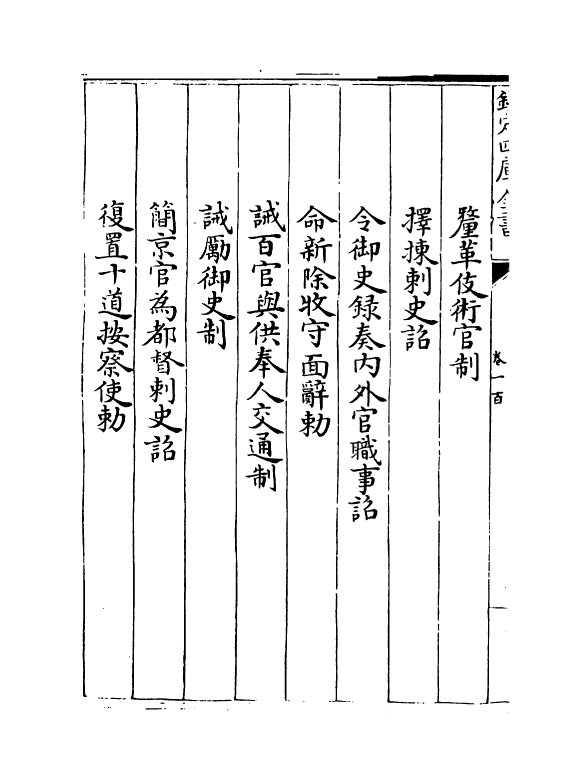 欽定四庫全書
卷一百
釐革伎術官制
擇揀刺史詔
令御史録奏内外官職事詔
命新除牧守面辭勅
誡百官與供奉人交通制
誡厲御史制
簡京官為都督刺史詔
復置十道按察使勅